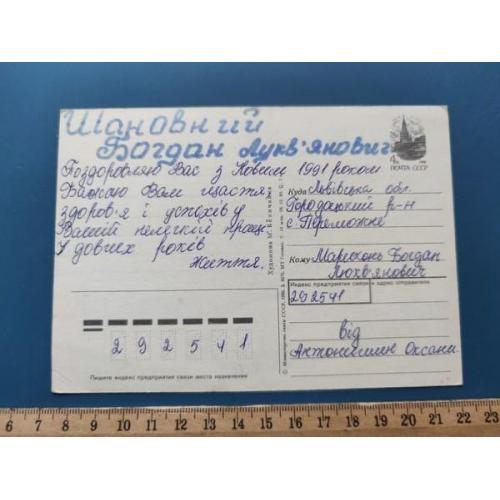 Шановний
Богдан Лукв'янович
Поздоровляю Вас з Новим 1991 роком
Бажаю Вам щастя,
здоров'я і успіхів у
Вашій нелегкій праці
У довгих років
Життя.
4к
ПОЧТА СССР
Куда Львівська обл.
Городоцький р-н
с. Переможне
Кому Марисконь Богдан
Люкв'янович
Индекс предприятия связи и адрес отправителя
292541
від
Оксани
Художник М. Бёттичева
© Министерство связи СССР, 1990.
292541
Пишите индекс предприятия связи места назначения
6 7 8 9 10 11 12 13 14 15 16 17 18 19 20 21 22 23